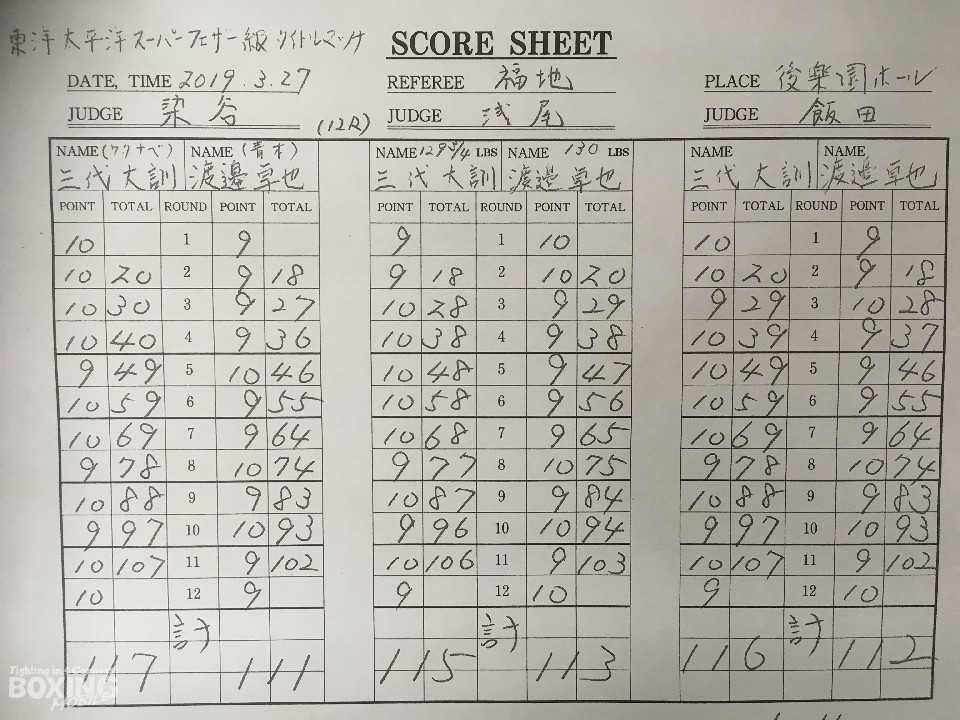 東洋太平洋スーパーフェザー級タイトルマッチ SCORE SHEET
DATE, TIME 2019.3.27 REFEREE 福地 PLACE 後楽園ホール
JUDGE 染谷 (12R) JUDGE 浅尾 JUDGE 飯田
NAME (ワタナベ) NAME (青木) NAME 129 3/4 LBS NAME 130 LBS NAME NAME
三代大訓 渡邉卓也 三代大訓 渡邉卓也 三代大訓 渡邉卓也
POINT TOTAL ROUND POINT TOTAL POINT TOTAL ROUND POINT TOTAL POINT TOTAL ROUND POINT TOTAL
10 1 9 9 1 10 10 1 9
10 20 2 9 18 9 18 2 10 20 10 20 2 9 18
10 30 3 9 27 10 28 3 9 29 9 29 3 10 28
10 40 4 9 36 10 38 4 9 38 10 39 4 9 37
9 49 5 10 46 10 48 5 9 47 10 49 5 9 46
10 59 6 9 55 10 58 6 9 56 10 59 6 9 55
10 69 7 9 64 10 68 7 9 65 10 69 7 9 64
9 78 8 10 74 9 77 8 10 75 9 78 8 10 74
10 88 9 9 83 10 87 9 9 84 10 88 9 9 83
9 97 10 10 93 9 96 10 10 94 9 97 10 10 93
10 107 11 9 102 10 106 11 9 103 10 107 11 9 102
10 12 9 9 12 10 9 12 10
計 計 計
117 111 115 113 116 112
Fighting in 4 Corners!
BOXING
MOBILE